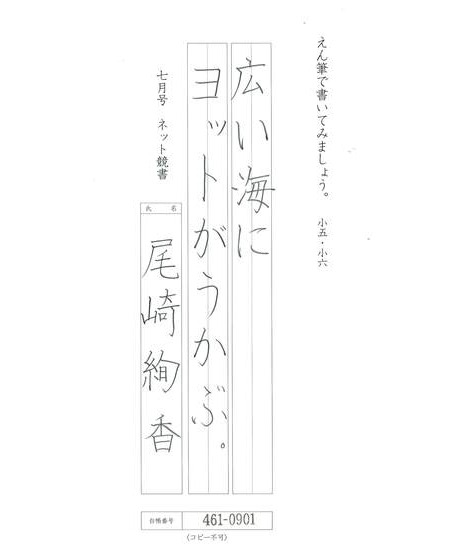 えん筆で書いてみましょう。 小五・小六
広い海に
ヨットがうかぶ。
七月号 ネット競書
氏名
尾崎絢香
台帳番号 461-0901
(コピー不可)